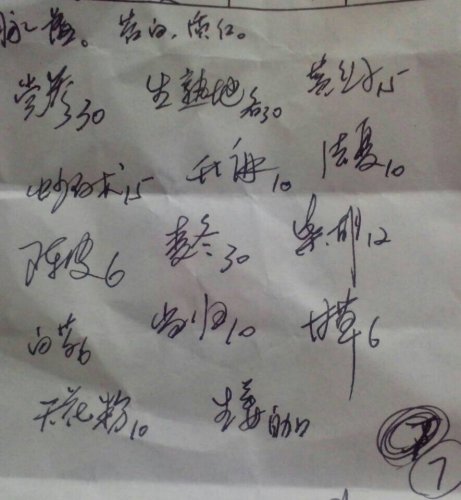 苔白,质红。
党参30 生熟地各30 黄芪15
炒白术15 茯苓10 法夏10
陈皮6 麦冬30 柴胡12
当归10 甘草6
天花粉10 生姜自加
7